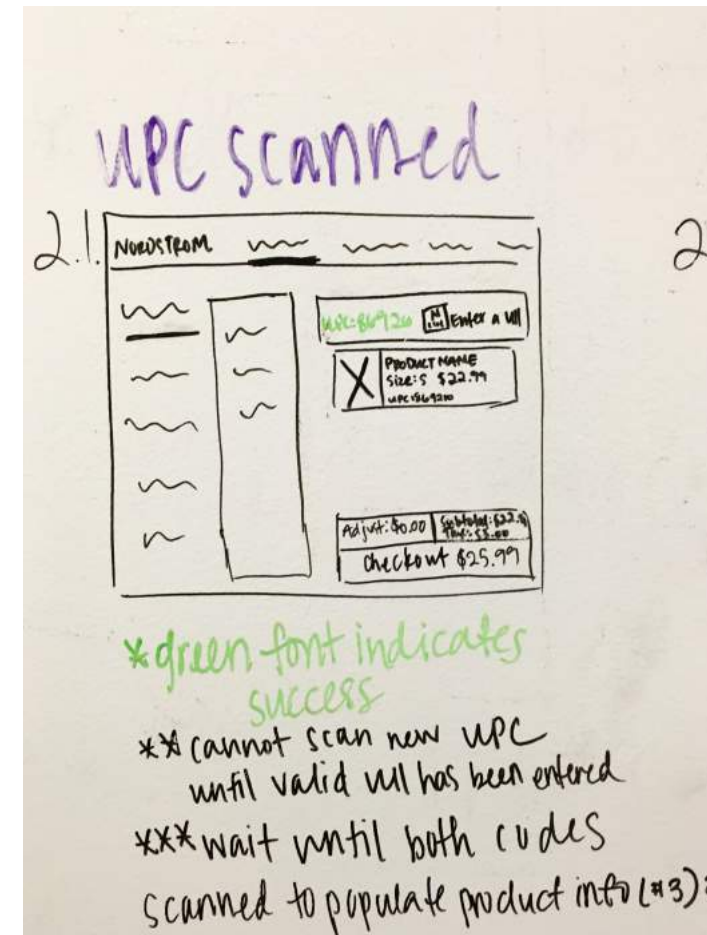 UPC scanned
2.1.
2
NORDSTROM
UPC: 869210
Enter a VUI
PRODUCT NAME
Size: S $22.99
UPC: 869210
Adjust: $0.00
Subtotal: $22.99
Tax: $3.00
Checkout $25.99
*green font indicates
success
**cannot scan new UPC
until valid VUI has been entered
***wait until both codes
scanned to populate product info (#3)